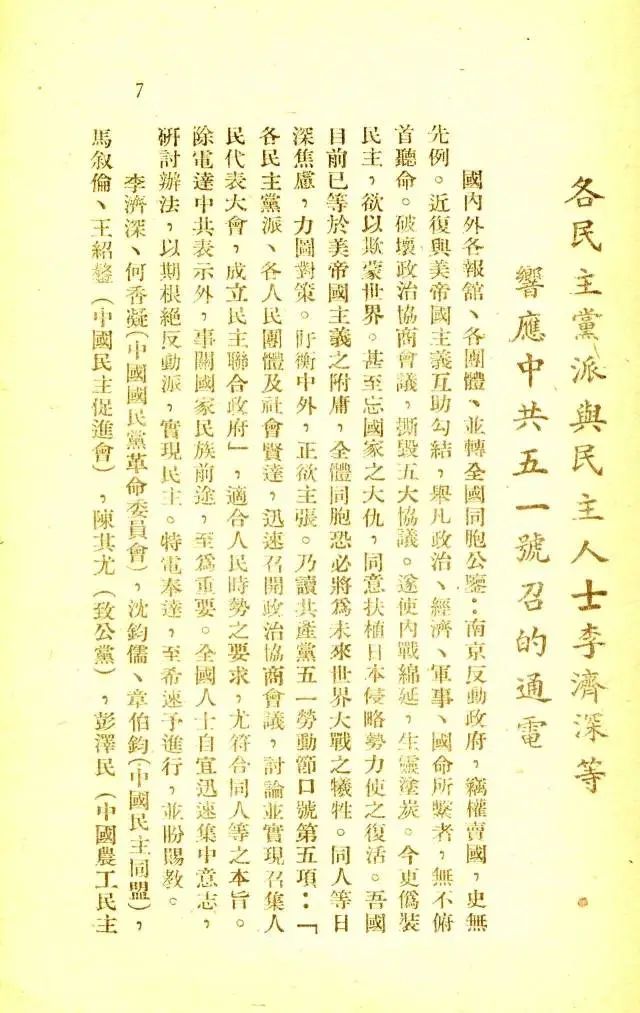 各民主黨派與民主人士李濟深等
響應中共五一號召的通電
國內外各報館、各團體、並轉全國同胞公鑒：南京反動政府，竊權賣國，史無
先例。近復與美帝國主義互助勾結，舉凡政治、經濟、軍事、國命所繫者，無不俯
首聽命。破壞政治協商會議，撕毀五大協議。遂使內戰綿延，生靈塗炭。今更僞裝
民主，欲以欺蒙世界。甚至忘國家之大仇，同意扶植日本侵略勢力使之復活。吾國
目前已等於美帝國主義之附庸，全體同胞恐必將爲未來世界大戰之犧牲。同人等日
深焦慮，力圖對策。盱衡中外，正欲主張。乃讀共產黨五一勞動節口號第五項：「
各民主黨派、各人民團體及社會賢達，迅速召開政治協商會議，討論並實現召集人
民代表大會，成立民主聯合政府」，適合人民時勢之要求，尤符合同人等之本旨。
除電達中共表示外，事關國家民族前途，至爲重要。全國人士自宜迅速集中意志，
研討辦法，以期根絕反動派，實現民主。特電奉達，至希速予進行，並盼賜教。
李濟深、何香凝（中國國民黨革命委員會），沈鈞儒、章伯鈞（中國民主同盟），
馬叙倫、王紹鏊（中國民主促進會），陳其尤（致公黨），彭澤民（中國農工民主
7